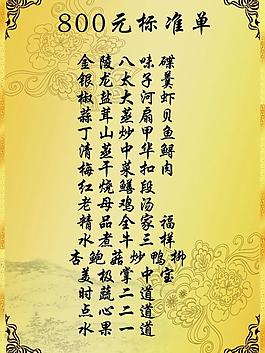 800元标准单
金陵八味碟
银龙太子羹
椒盐大河虾
蒜茸蒸扇贝
丁山炒甲鱼
清蒸中华鲟
梅干菜扣肉
红烧鳝段
老母鸡汤
精品全家福
水煮牛三样
杏鲍菇炒鸭柳
美极掌中宝
时蔬二道
点心二道
水果一道